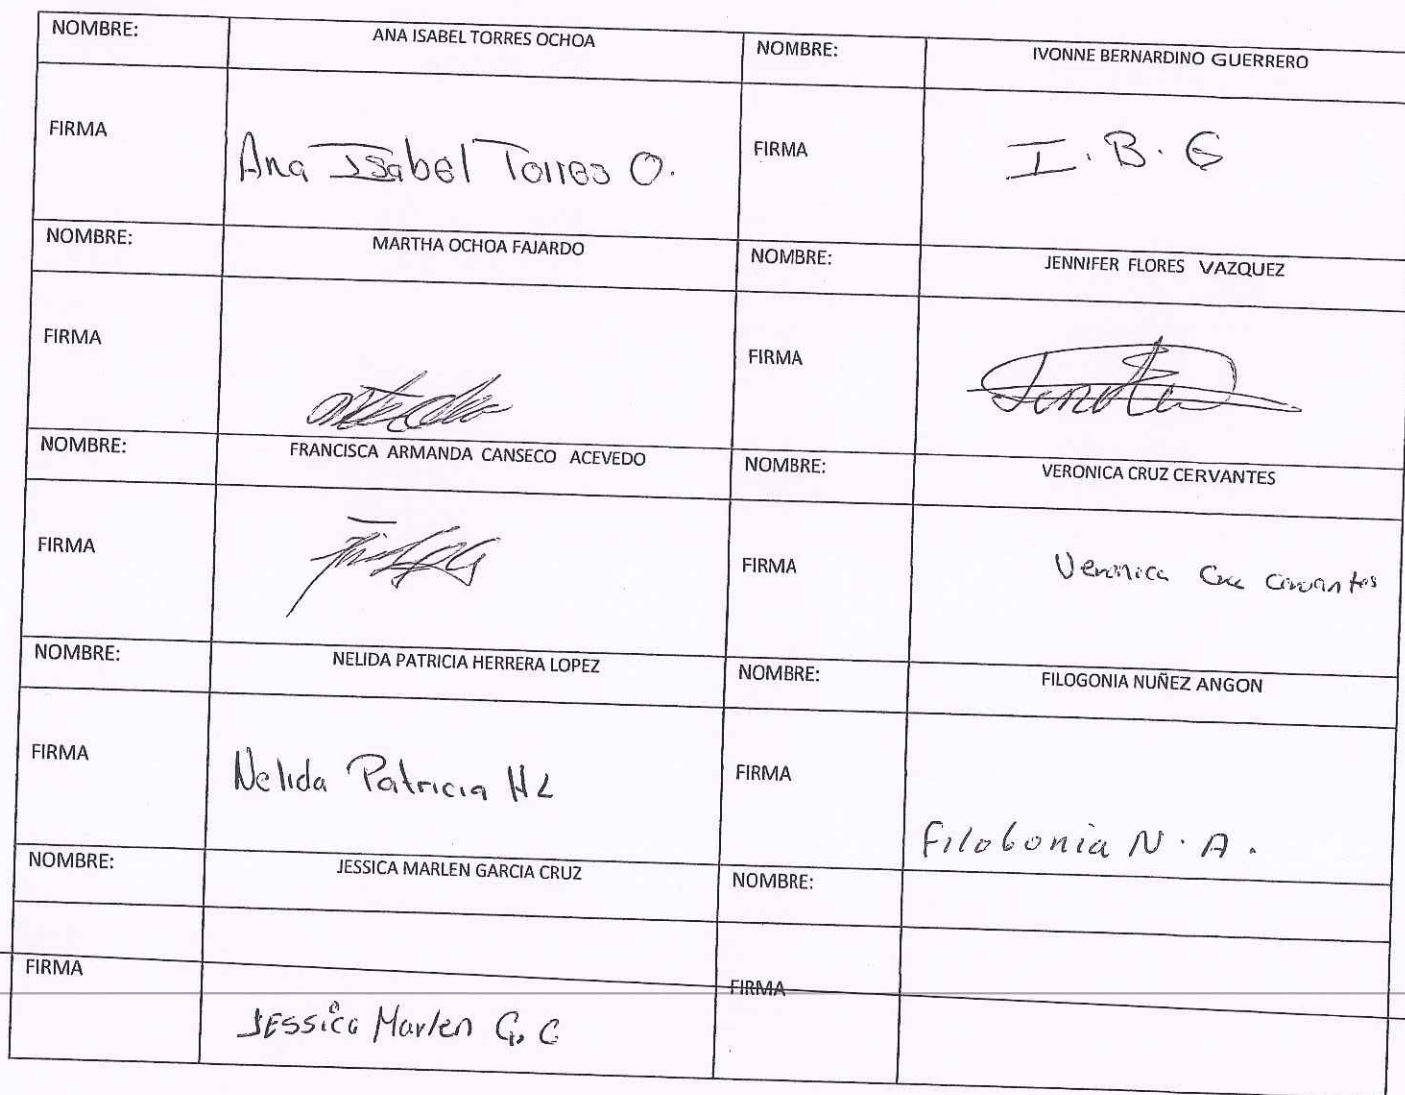 NOMBRE: ANA ISABEL TORRES OCHOA NOMBRE: IVONNE BERNARDINO GUERRERO
FIRMA Ana Isabel Torres O. FIRMA I. B. G
NOMBRE: MARTHA OCHOA FAJARDO NOMBRE: JENNIFER FLORES VAZQUEZ
FIRMA FIRMA
NOMBRE: FRANCISCA ARMANDA CANSECO ACEVEDO NOMBRE: VERONICA CRUZ CERVANTES
FIRMA FIRMA Veronica Cruz Cervantes
NOMBRE: NELIDA PATRICIA HERRERA LOPEZ NOMBRE: FILOGONIA NUÑEZ ANGON
FIRMA Nelida Patricia HL FIRMA Filobonia N. A.
NOMBRE: JESSICA MARLEN GARCIA CRUZ NOMBRE:
FIRMA JESSica Marlen G. C FIRMA